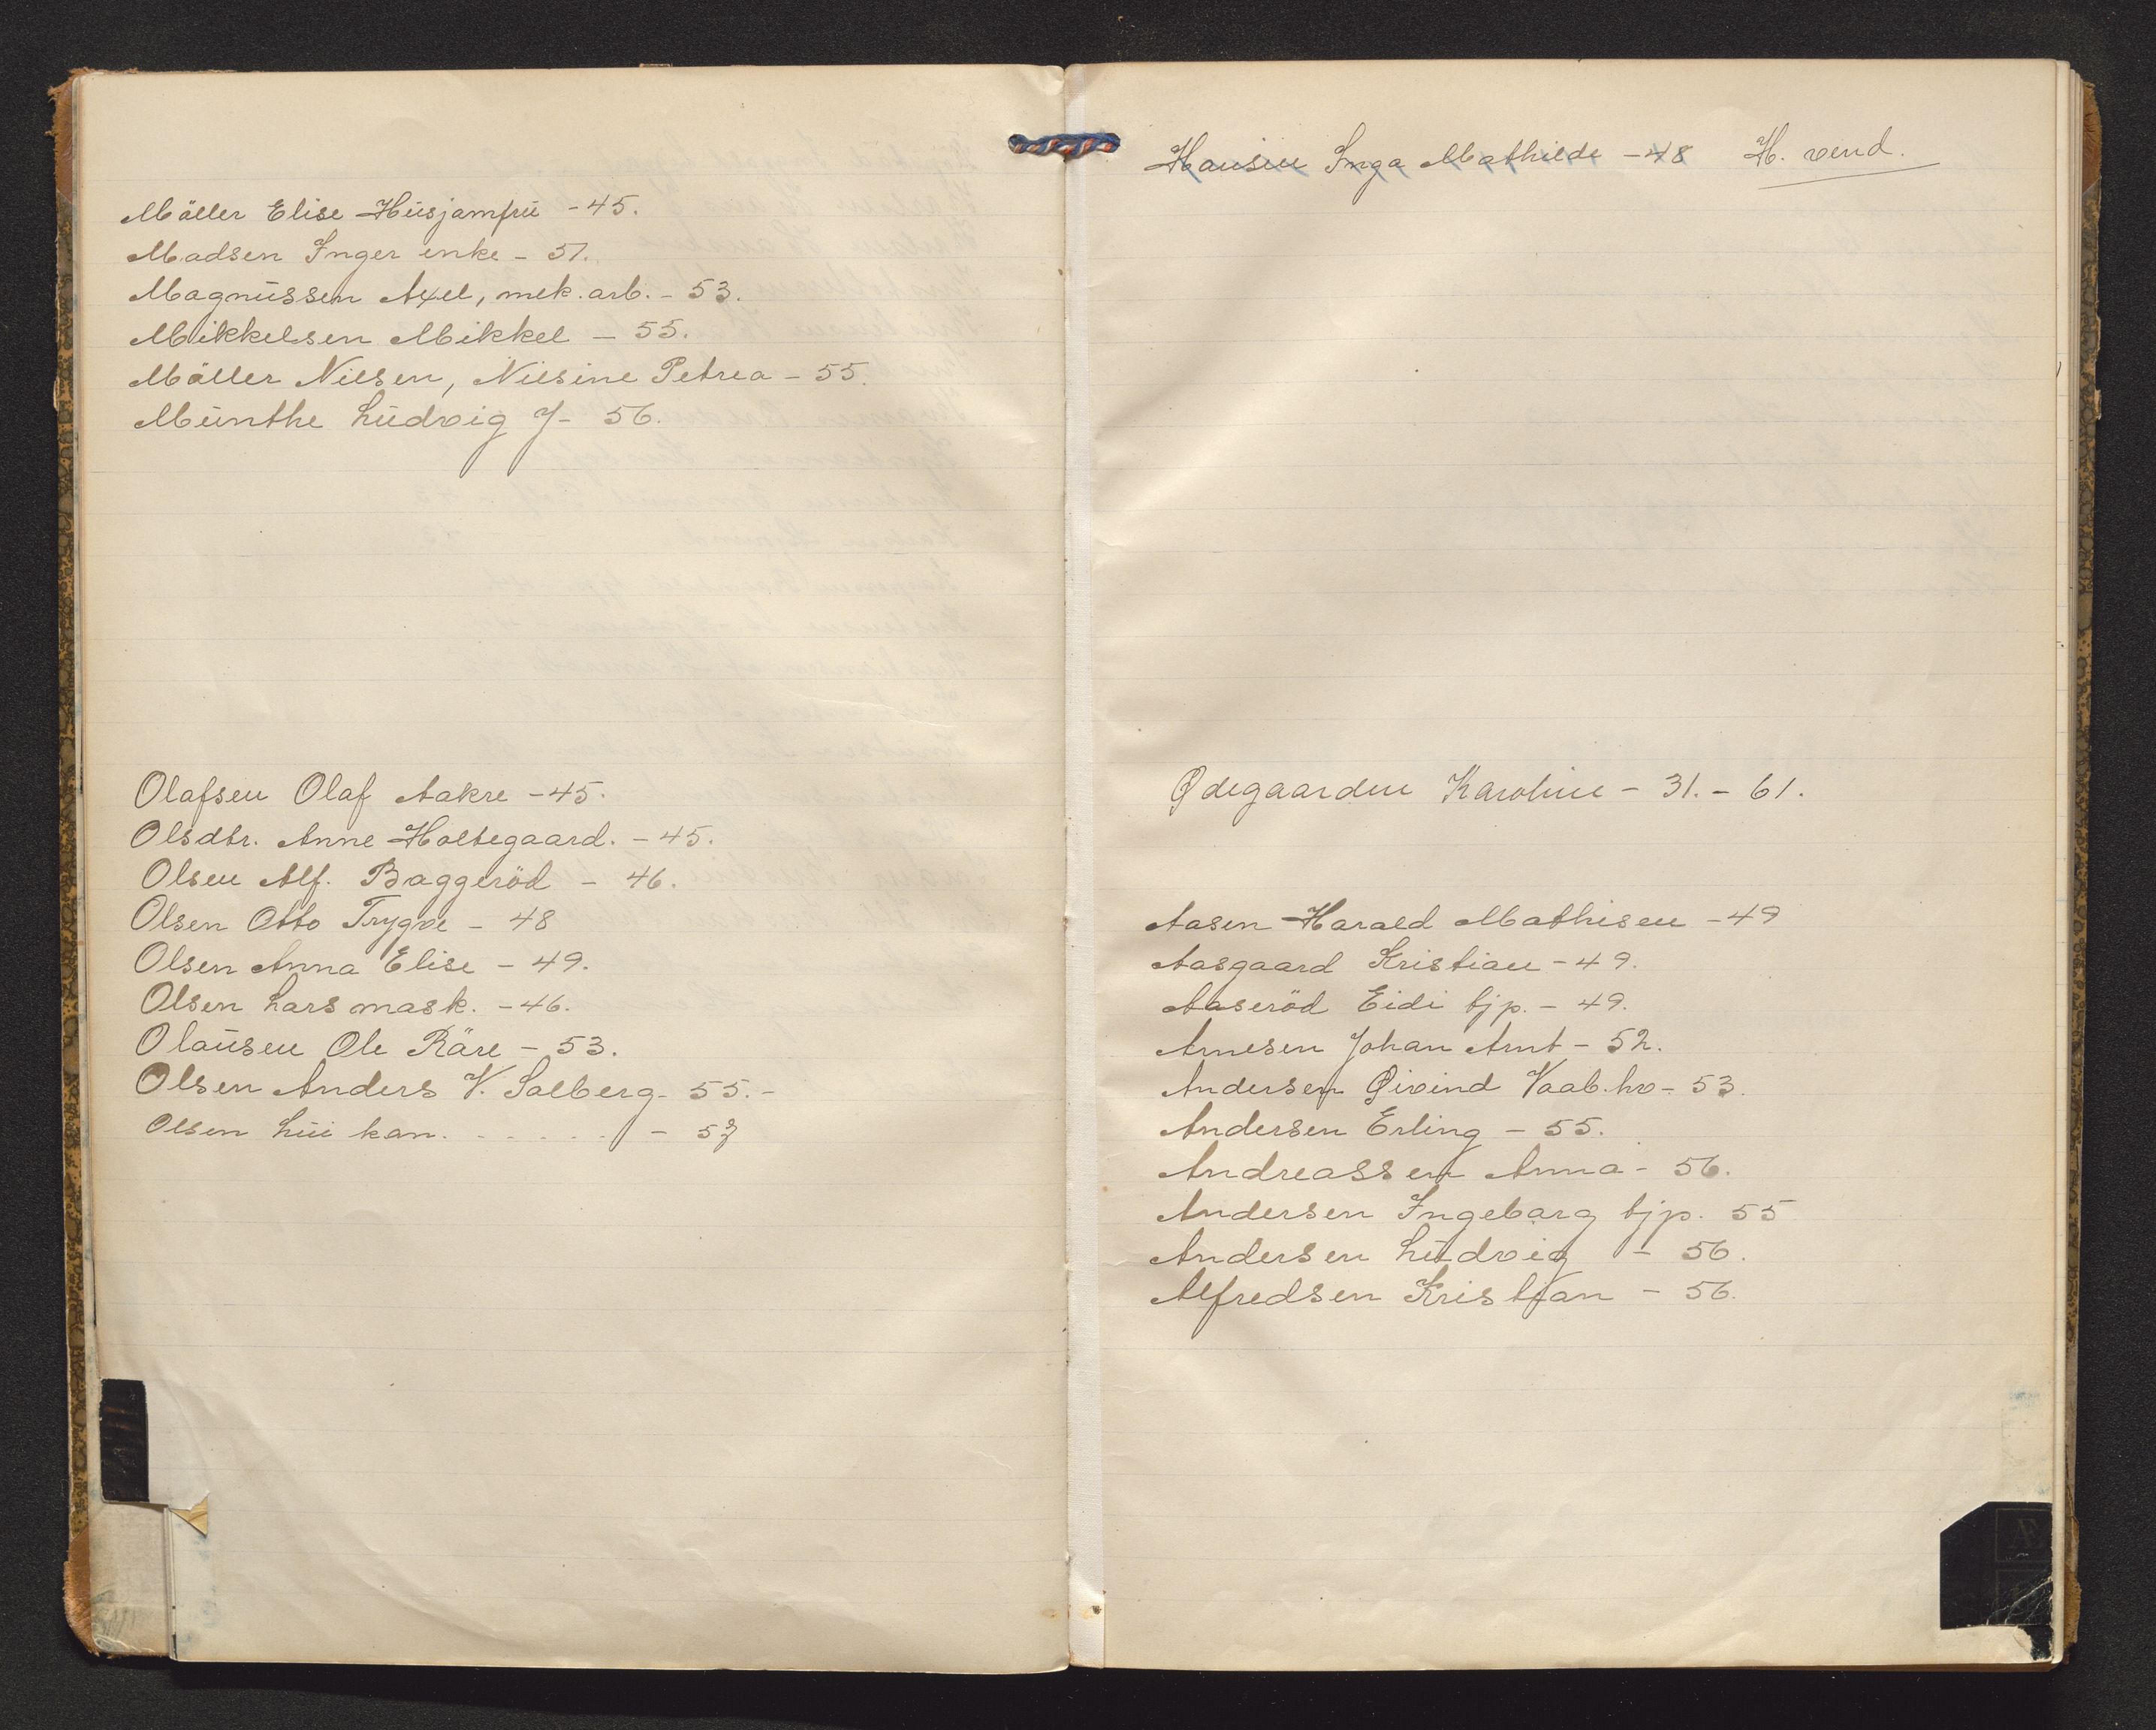 Möller Elise Husjomfru - 45.
Madsen Inger enke - 51.
Magnussen Axel, mek. arb. - 53.
Mikkelsen Mikkel - 55.
Möller Nilsen, Nilsine Petrea - 55.
Munthe Ludvig J - 56.
Olafsen Olaf Aakre - 45.
Olsdtr. Anne Holtegaard. - 45.
Olsen Alf. Baggeröd - 46.
Olsen Otto Trygve - 48
Olsen Anna Elise - 49.
Olsen Lars mask. - 46.
Olausen Ole Räre - 53.
Olsen Anders V. Solberg - 55. -
Olsen kan. - 57
Hansen Inga Mathilde - 48 H. vend.
Ødegaarden Karoline - 31. - 61.
Aasen Harald Mathisen - 49
Aasgaard Kristian - 49.
Aaseröd Eidi tjp. - 49.
Arnesen Johan Arnt - 52.
Andersen Øivind Vaab. hv - 53.
Andersen Erling - 55.
Andreassen Anna - 56.
Andersen Ingeborg tjp. 55
Andersen Ludvig - 56.
Alfredsen Kristian - 56.
Æ